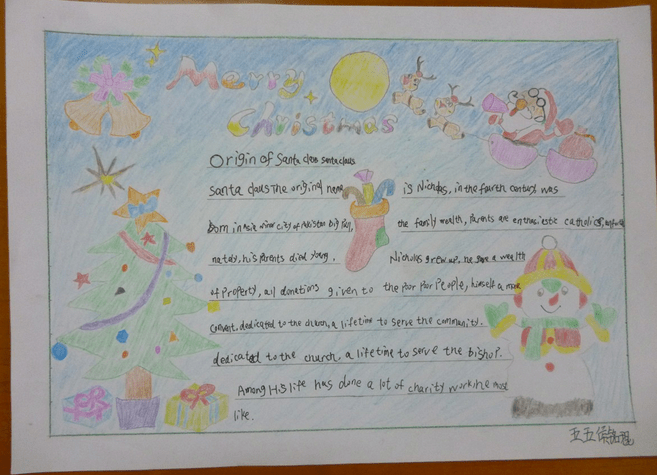 Merry
Christmas
Origin of Santa claus santa claus
santa claus The original name is Nicholas, in the fourth century was
Born in asia minor city of the family wealth, parents are enthusiastic catholics,
nately, his parents died young. Nicholas grew up, he gave a wealth
of property, all donations given to the poor poor People, himself a
convent, dedicated to the church, a lifetime to serve the community.
dedicated to the church, a lifetime to serve the bishop.
Among His life has done a lot of charity work he most
like.
五五